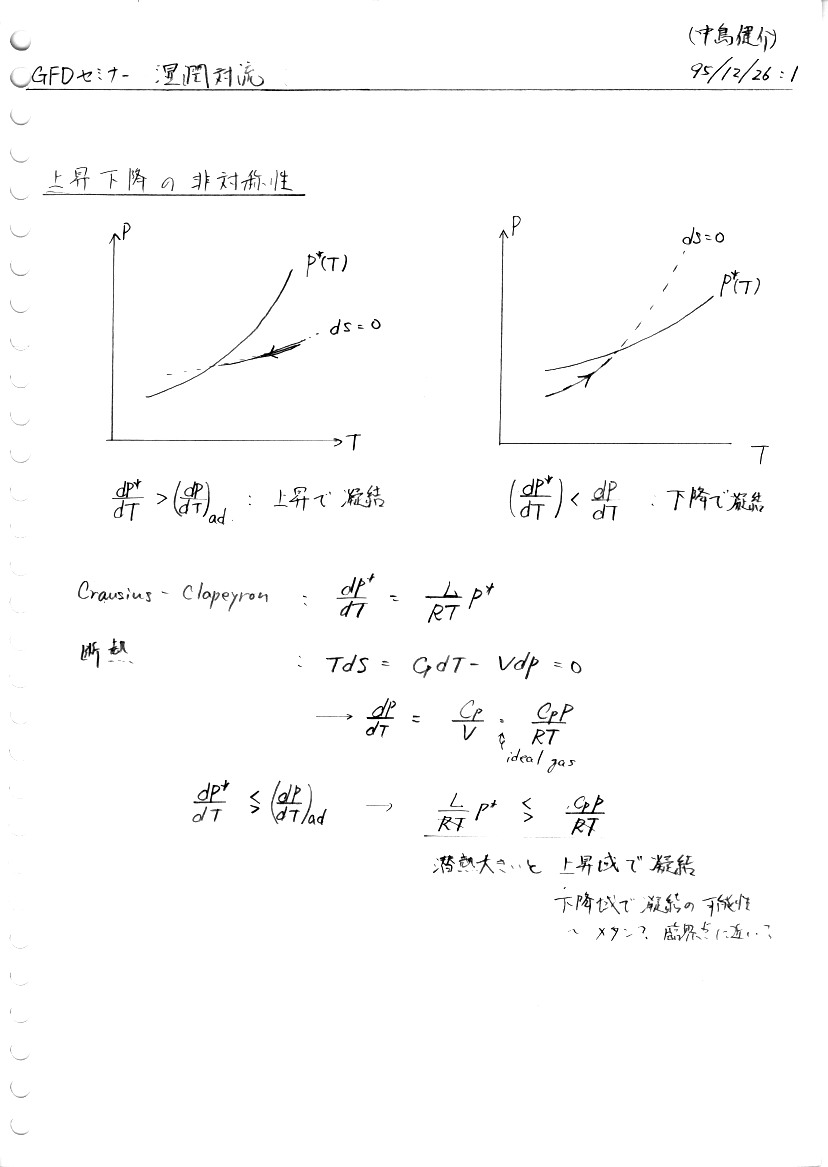 (中島健介)
GFDセミナー 湿潤対流 95/12/26:1
上昇下降の非対称性
P P
ds=0
P*(T) P*(T)
ds=0
T T
dP*/dT > (dP/dT)ad : 上昇で凝結 (dP*/dT) < dP/dT : 下降で凝結
Crausius - Clapeyron : dP*/dT = L/RT P*
断熱 : Tds = CpdT - Vdp = 0
→ dP/dT = Cp/V = CpP/RT
ideal gas
dP*/dT ≶ (dP/dT)ad → L/RT P* ≶ CpP/RT
潜熱大きいと 上昇域で凝結
下降域で凝結の可能性
メタン? 臨界点に近い?